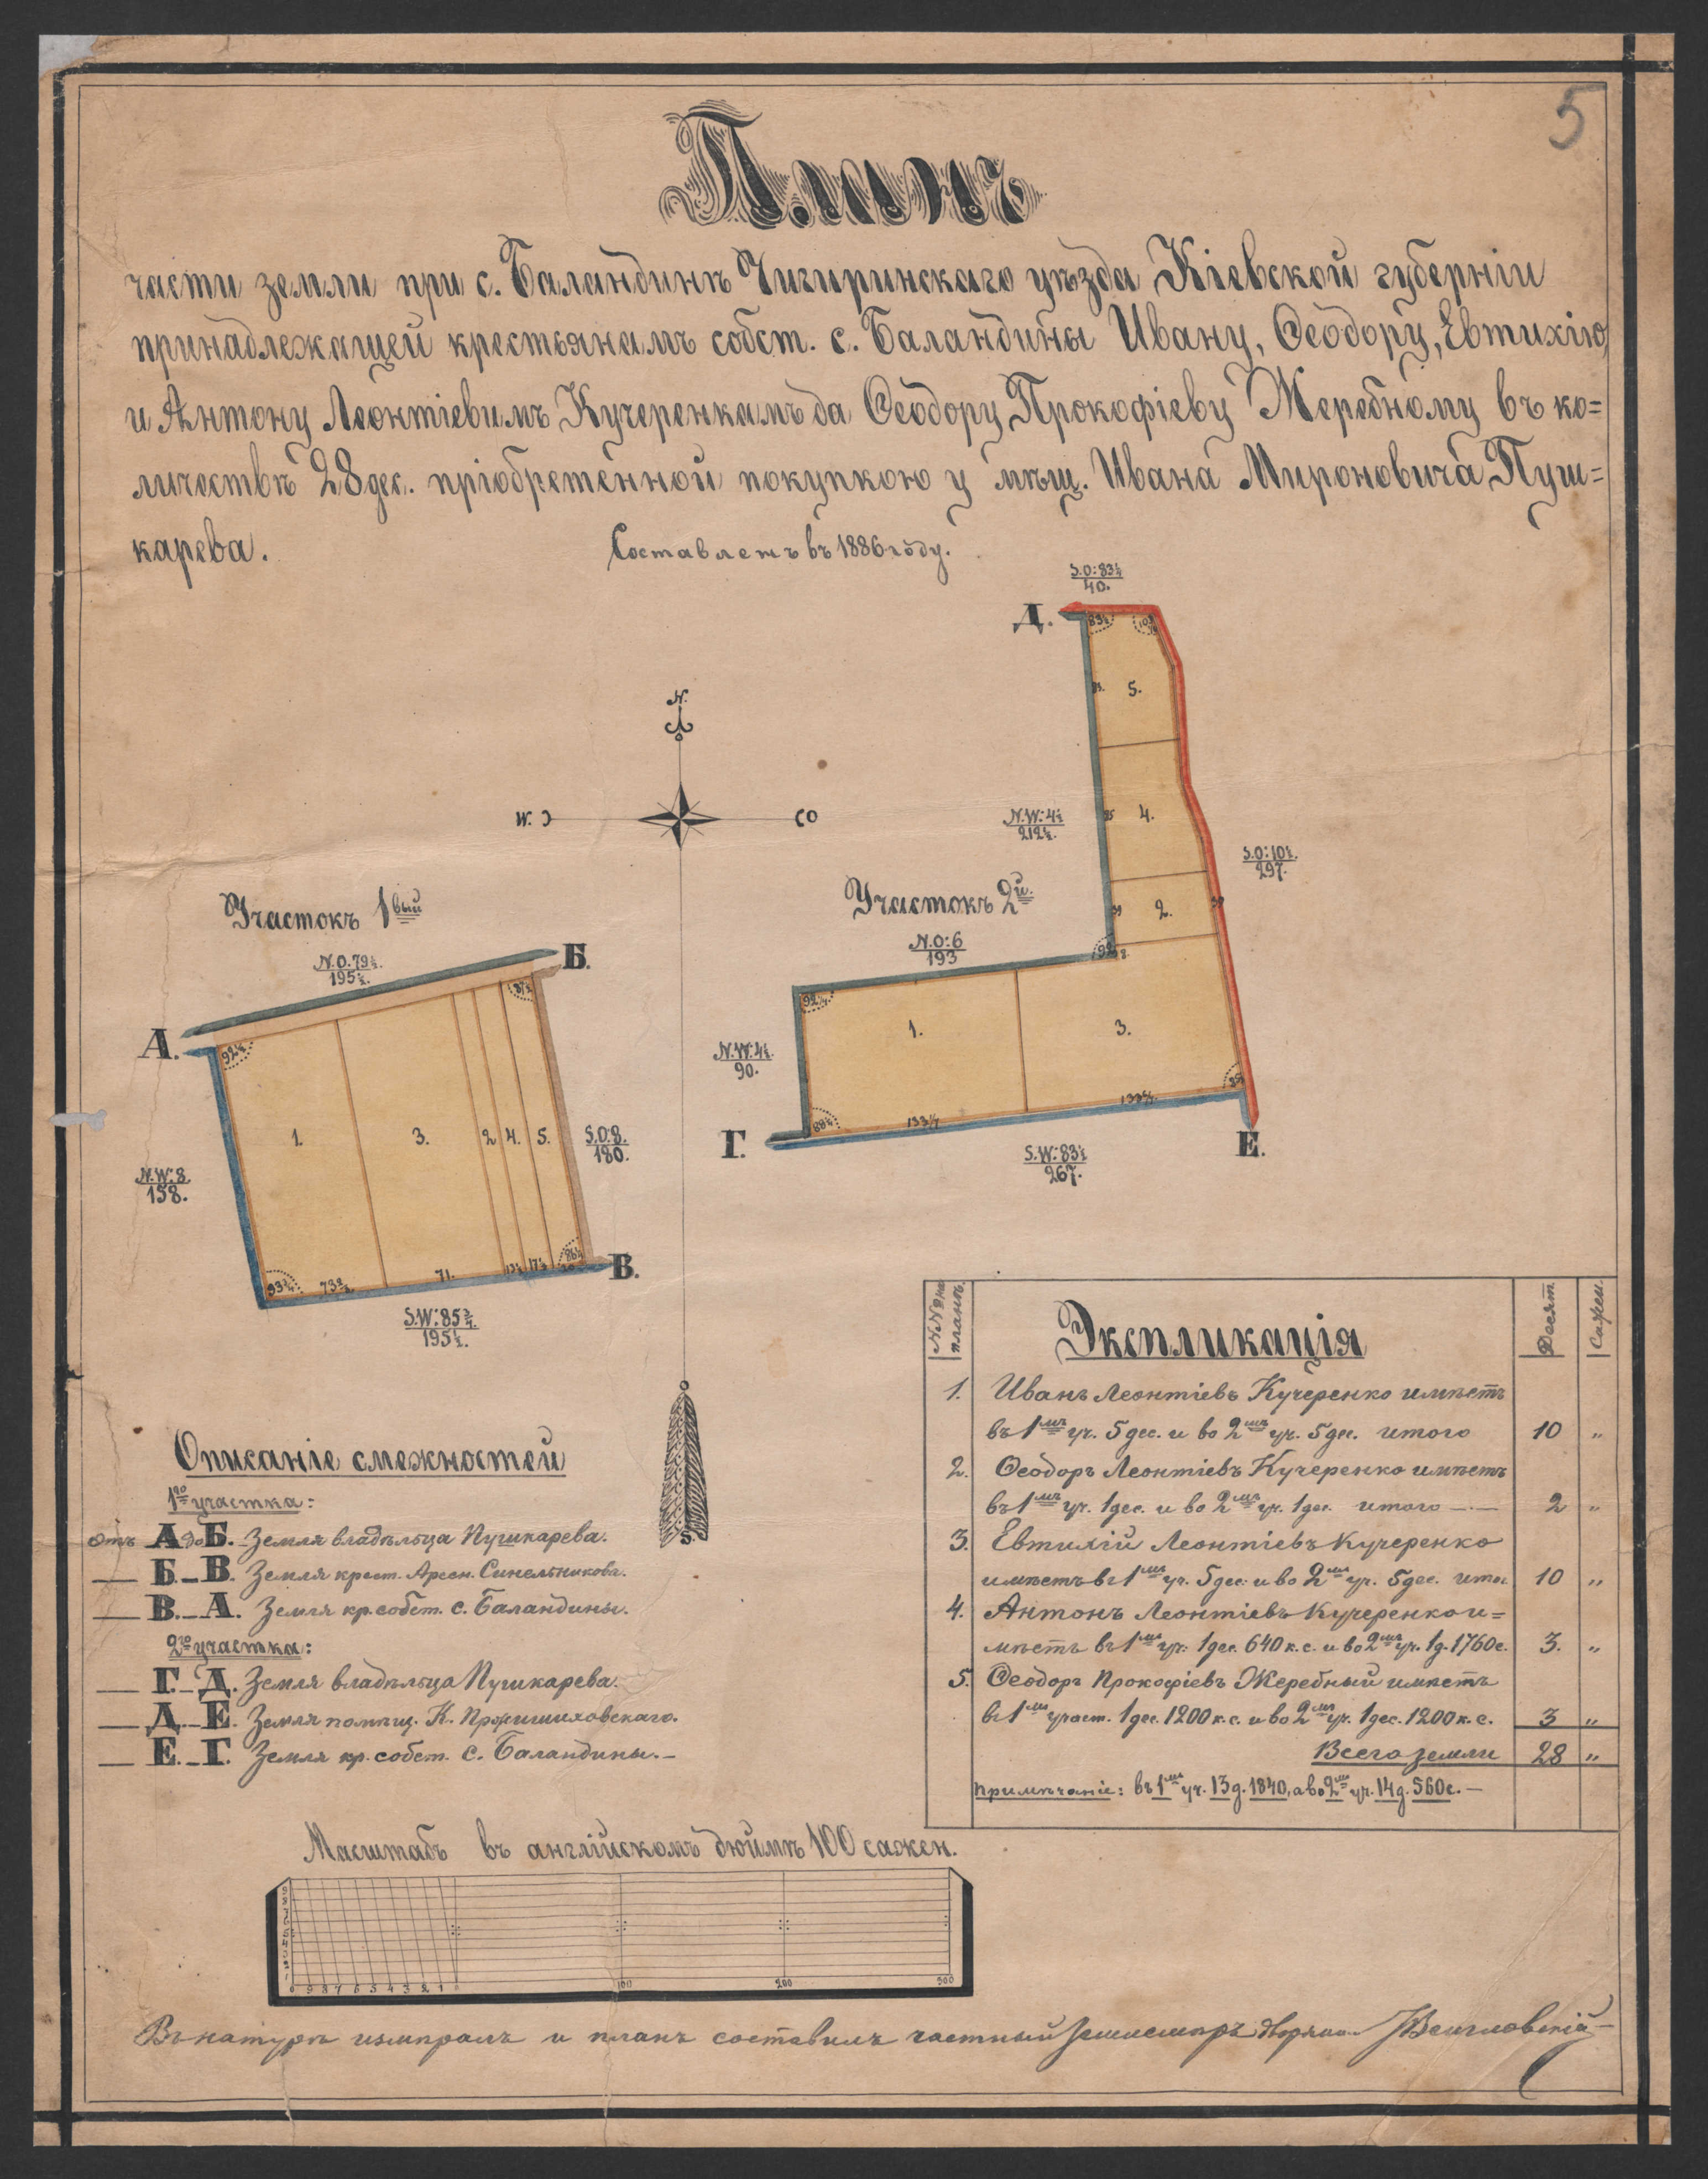 5
Планъ
части земли при с. Баландинѣ Чигиринскаго уѣзда Кіевской губерніи
принадлежащей крестьянамъ собст. с. Баландины Ивану, Ѳеодору, Евтихію,
и Антону Леонтіевимъ Кучеренкамъ да Ѳеодору Прокофіеву Жеребному въ ко=
личествѣ 28 дес. пріобретенной покупкою у мѣщ. Ивана Мироновича Пуш=
карева.
Составленъ въ 1886 году.
S.O:83½
40.
Д.
83½
5.
N.
4.
W.
O
N.W:4½
212½.
S.O:10½.
297.
2.
Участокъ 1вый
Участокъ 2й.
N.O.79½.
195½.
Б.
N.O:6
193
А.
92½
87½
92¼
1.
3.
N.W:4½.
90.
88½
133½
Г.
Е.
S.W:83½
267.
1.
3.
2
4.
5.
S.O:8.
180.
N.W:8.
158.
93¾.
73¾.
71.
17½
86½
В.
S.W:85¾.
195½.
S.
Описаніе смежностей
1го участка:
Отъ А до Б. Земля владѣльца Пушкарева.
— Б.–В. Земля крест. Арсен. Синельникова.
— В.–А. Земля кр. собст. с. Баландины.
2го участка:
— Г.–Д. Земля владѣльца Пушкарева.
— Д.–Е. Земля помѣщ. К.
— Е.–Г. Земля кр. собст. с. Баландины.–
№№ на планѣ.
Экспликація
Десят.
Сажен.
1. Иванъ Леонтіевъ Кучеренко имѣетъ
въ 1мъ уч. 5 дес. и во 2мъ уч. 5 дес. итого 10 „
2. Ѳеодоръ Леонтіевъ Кучеренко имѣетъ
въ 1мъ уч. 1 дес. и во 2мъ уч. 1 дес. итого —·— 2 „
3. Евтихій Леонтіевъ Кучеренко
имѣетъ въ 1мъ уч. 5 дес. и во 2мъ уч. 5 дес. итог 10 „
4. Антонъ Леонтіевъ Кучеренко и=
мѣетъ въ 1мъ уч. 1 дес. 640 к.с. и во 2мъ уч. 1 д. 1760 с. 3. „
5. Ѳеодоръ Прокофіевъ Жеребный имѣетъ
въ 1мъ участ. 1 дес. 1200 к.с. и во 2мъ уч. 1 дес. 1200 к.с. 3 „
Всего земли 28 „
Примѣчаніе: въ 1мъ уч. 13 д. 1840, а во 2мъ уч. 14 д. 560 с.–
Масштабъ въ англійскомъ дюймѣ 100 сажен.
9
8
7
6
5
4
3
2
1
0 9 8 7 6 5 4 3 2 1 100 200 300
Въ натурѣ измѣрялъ и планъ составилъ частный землемѣръ дворян.